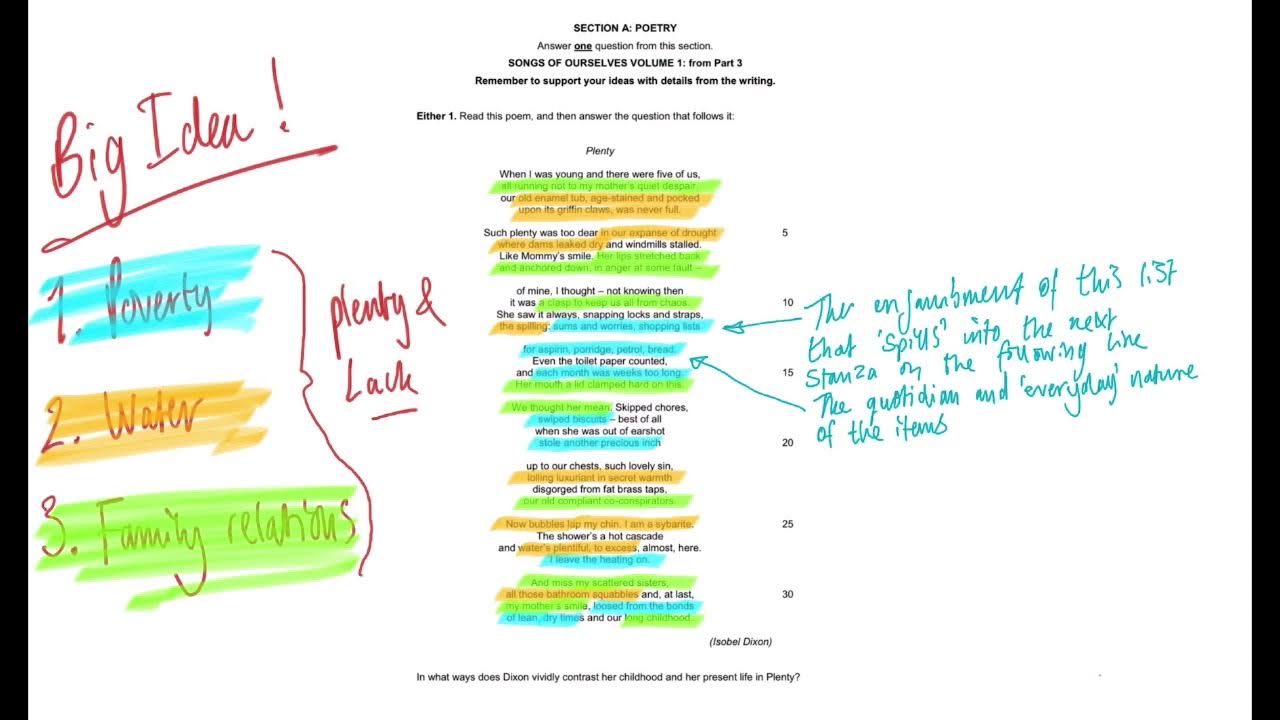 SECTION A: POETRY
Answer one question from this section.
SONGS OF OURSELVES VOLUME 1: from Part 3
Remember to support your ideas with details from the writing.
Either 1. Read this poem, and then answer the question that follows it:
Plenty
When I was young and there were five of us,
all running riot to my mother's quiet despair,
our old enamel tub, age-stained and pocked
upon its griffin claws, was never full.
Such plenty was too dear in our expanse of drought 5
where dams leaked dry and windmills stalled.
Like Mommy's smile. Her lips stretched back
and anchored down, in anger at some fault –
of mine, I thought – not knowing then
it was a clasp to keep us all from chaos. 10
She saw it always, snapping locks and straps,
the spilling: sums and worries, shopping lists
for aspirin, porridge, petrol, bread.
Even the toilet paper counted,
and each month was weeks too long. 15
Her mouth a lid clamped hard on this.
We thought her mean. Skipped chores,
swiped biscuits – best of all
when she was out of earshot
stole another precious inch 20
up to our chests, such lovely sin,
lolling luxuriant in secret warmth
disgorged from fat brass taps,
our old compliant co-conspirators.
Now bubbles lap my chin. I am a sybarite. 25
The shower's a hot cascade
and water's plentiful, to excess, almost, here.
I leave the heating on.
And miss my scattered sisters,
all those bathroom squabbles and, at last, 30
my mother's smile, loosed from the bonds
of lean, dry times and our long childhood.
(Isobel Dixon)
In what ways does Dixon vividly contrast her childhood and her present life in Plenty?
Big Idea!
1. Poverty
2. Water
3. Family relations
plenty &
Lack
The enjambment of this list
that 'spills' into the next
stanza on the following line
The quotidian and 'everyday' nature
of the items